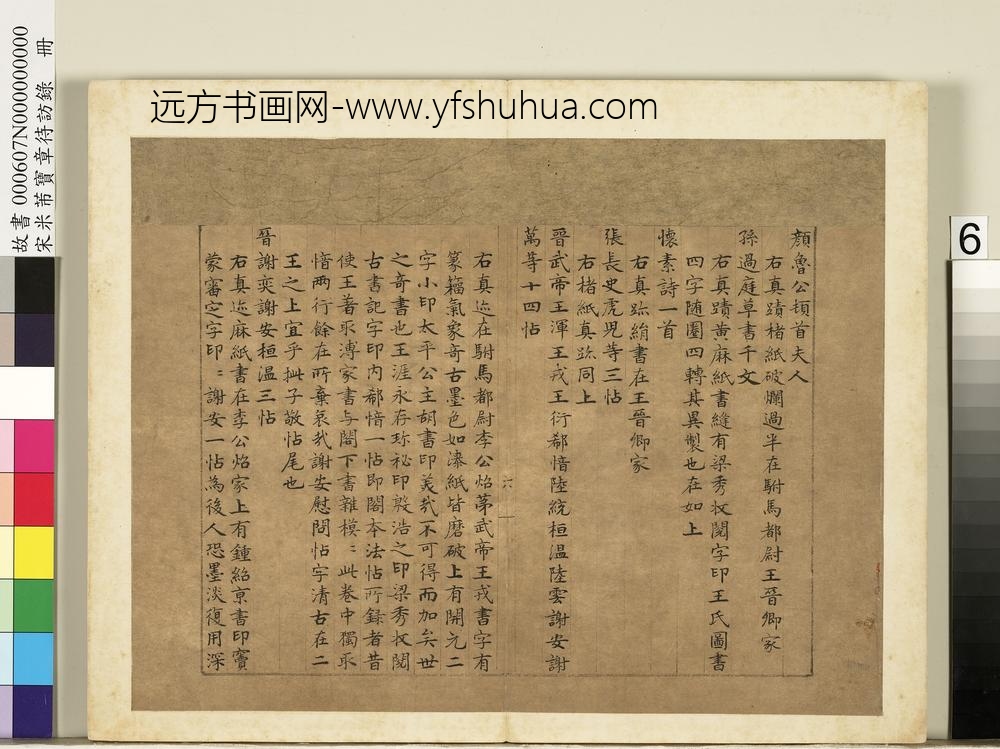 远方书画网-www.yfshuhua.com
故書 000607N000000000
宋米芾寶章待訪錄 冊
6
顏魯公頓首夫人
右真蹟楮紙破爛過半在駙馬都尉王晉卿家
孫過庭草書千文
右真蹟黃麻紙書縫有梁秀收閱字印王氏圖書
四字隨圈四轉其異製也在如上
懷素詩一首
右真跡絹書在王晉卿家
張長史虎兒等三帖
右楮紙真跡同上
晉武帝王渾王戎王衍郗愔陸統桓温陸雲謝安謝
萬等十四帖
六
右真迹在駙馬都尉李公炤第武帝王戎書字有
篆籀氣象奇古墨色如漆紙皆磨破上有開元二
字小印太平公主胡書印美哉不可得而加矣世
之奇書也王涯永存珎祕印殷浩之印梁秀收閱
古書記字印內郗愔一帖即閣本法帖所錄者昔
使王著取溥家書与閣下書雜模〻此卷中獨取
愔兩行餘在所棄哀哉謝安慰問帖字清古在二
王之上宜乎批子敬帖尾也
晉謝奕謝安桓温三帖
右真迹麻紙書在李公炤家上有鍾紹京書印竇
蒙審定字印〻謝安一帖為後人恐墨淡復用深